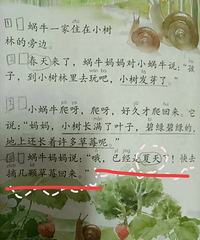 1 蜗牛一家住在小树
林的旁边。
2 春天来了，蜗牛妈妈对小蜗牛说：“孩
子，到小树林里去玩吧，小树发芽了。”
3 小蜗牛爬呀，爬呀，好久才爬回来。它
说：“妈妈，小树长满了叶子，碧绿碧绿的，
地上还长着许多草莓呢。”
蜗牛妈妈说：“哦，已经是夏天了！快去
摘几颗草莓回来。”